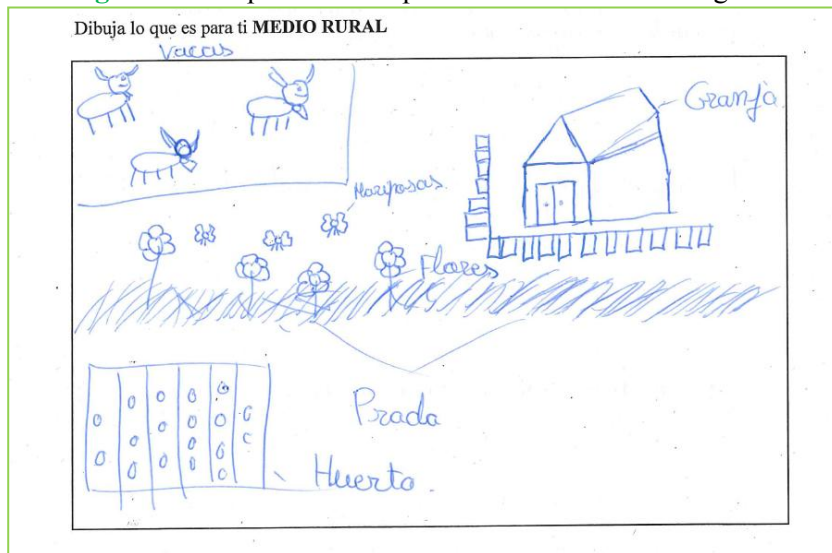 Dibuja lo que es para ti MEDIO RURAL
Vacas
Granja
Mariposas
Flores
Prado
Huerto.